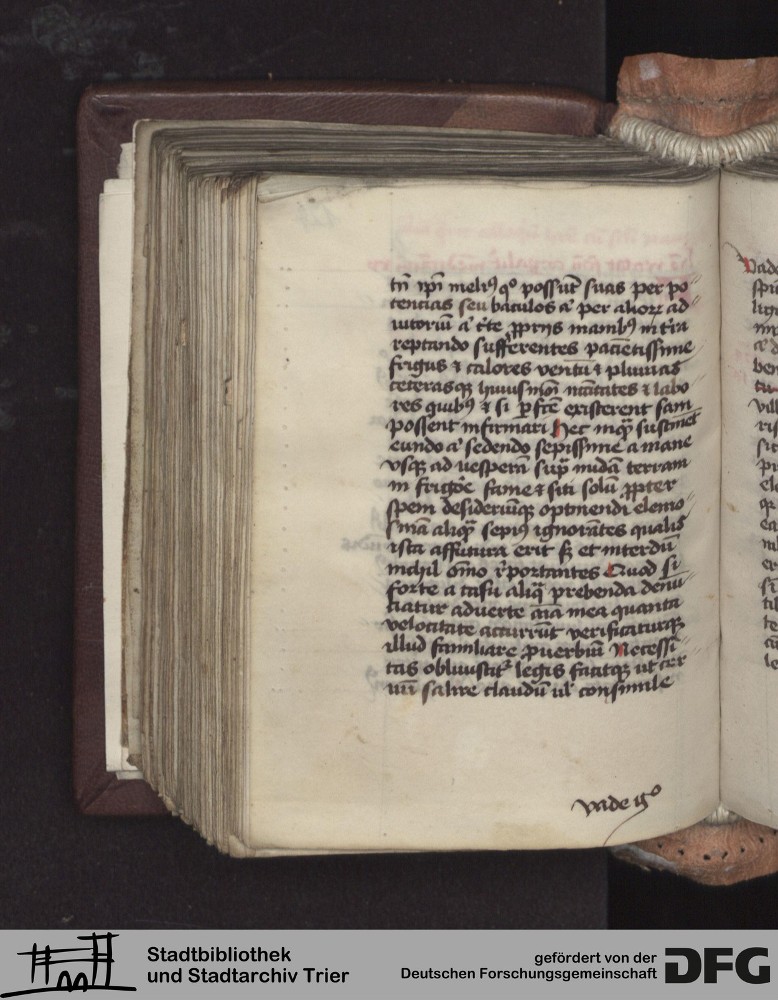 tn̄ ip̄i meliꝰ qͦ possūt suas per po
tencias seu baculos aͨ per alioꝝ ad
iutoriū aͨ ꝓprijs manibꝰ in t̄ra
reptando sufferentes pacientissime
frigus ⁊ calores ventū ⁊ pluuias
ceterasqꝫ huiusmōi ⁊ labo
res quibꝰ ⁊ si existerent sani
possent infirmari Hec inqͣ sustinēt
eundo aͨ sedendo sepissime a mane
vsqꝫ ad uesperā suꝑ nudā terram
in frigōe fame ⁊ siti solū ꝓpter
spem desideriūqꝫ optinendi elemo
sinā aliqͣ sepiꝰ ignorātes qualis
ista affutura erit sꝫ et interdū
nichil om̄o rͤportantes Quod si
forte a casu aliqͣ prebenda denū
ciatur aduerte aīa mea quanta
velocitate accurrūt verificaturqꝫ
illud familiare ꝓuerbiū Necessi
tas legis facitqꝫ ut cer
uū salire claudū ul̓ consimile
vade gͦ
Stadtbibliothek
und Stadtarchiv Trier
gefördert von der
Deutschen Forschungsgemeinschaft
DFG